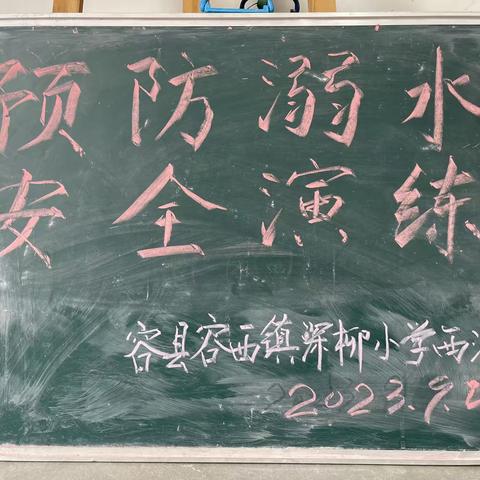 预防溺水
安全演练
容县容西镇深柳小学西
2023.9.